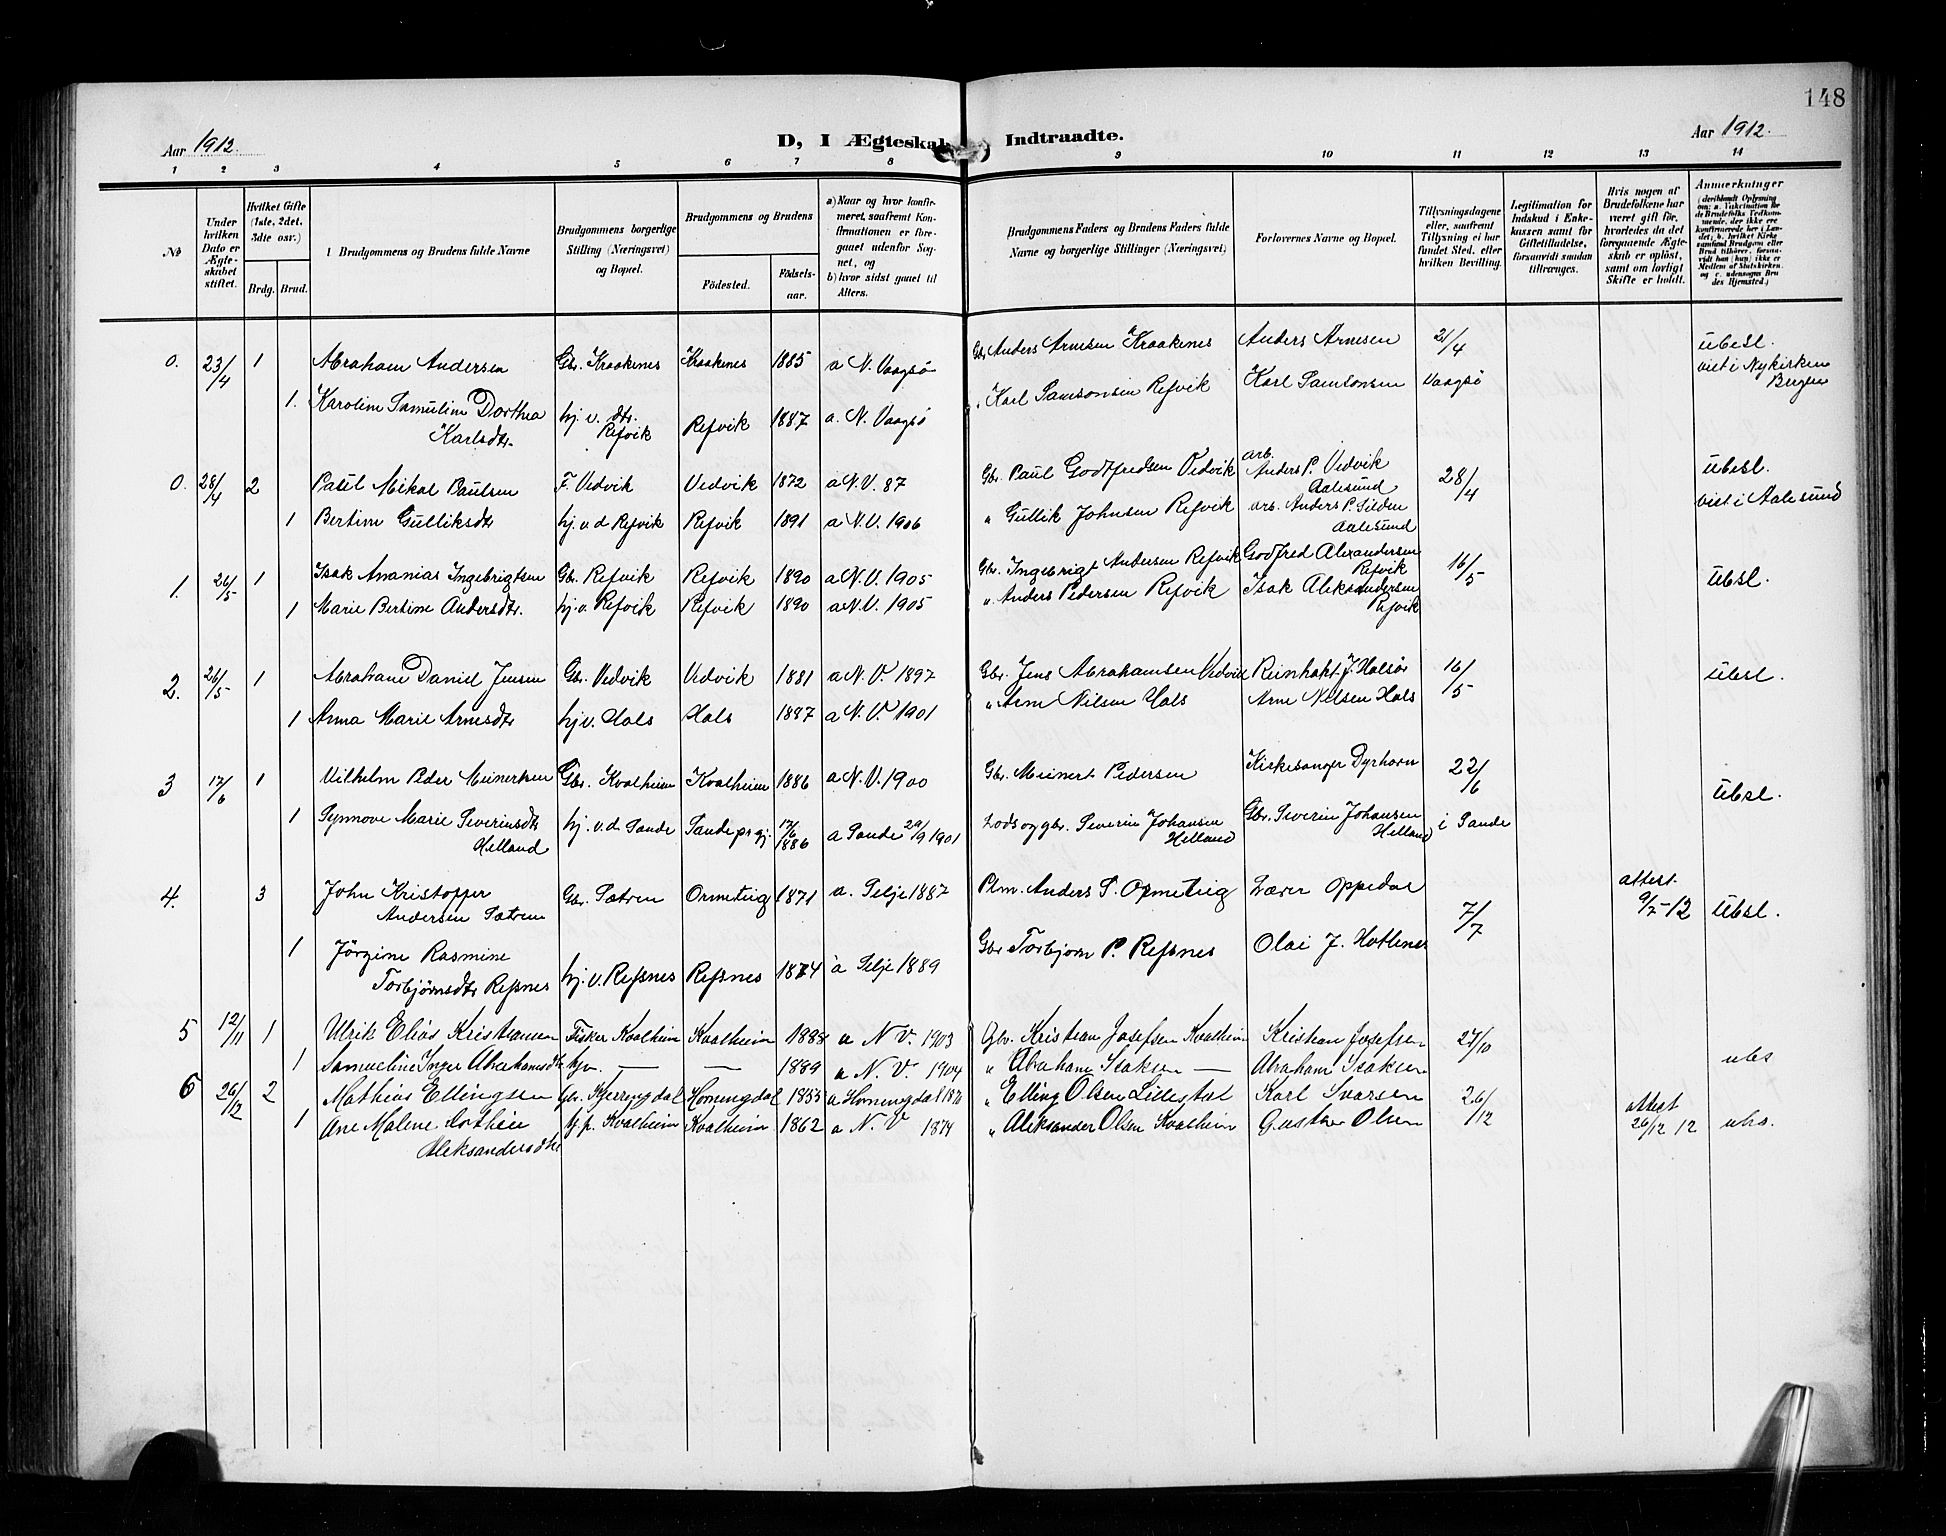 148
Aar 1912.
D, I Ægteskab Indtraadte.
Aar 1912.
1 2 3 4 5 6 7 8 9 10 11 12 13 14
No
Under hvilken Dato er Ægteskabet stiftet.
Hvilket Gifte (1ste, 2det, 3die osv.)
Brdg. Brud.
Brudgommens og Brudens fulde Navne
Brudgommens borgerlige Stilling (Næringsvei) og Bopæl.
Brudgommens og Brudens
Födested. Födselsaar.
a) Naar og hvor konfirmeret, saafremt Konfirmationen er foregaaet udenfor Sognet, og
b) hvor sidst gaaet til Alters.
Brudgommens Faders og Brudens Faders fulde Navne og borgerlige Stillinger (Næringsvei)
Forlovernes Navne og Bopæl.
Tillysningsdagene eller, saafremt Tillysning ei har fundet Sted, efter hvilken Bevilling.
Legitimation for Indskud i Enkekassen samt for Giftetilladelse, forsaavidt saadan tiltrænges.
Hvis nogen af Brudefolkene har været gift för, hvorledes da det foregaaende Ægteskab er oplöst, samt om lovligt Skifte er holdt.
Anmerkninger
0. 23/4 1 Abraham Andersen Gbr. Kraakenes Kraakenes 1885 a N. Vaagsö Gbr Anders Arnesen Kraakenes Anders Arnesen 21/4 ubesl.
viet i Nykirken Bergen
1. Karoline Samuline Dorthea Karlsdtr. hj. v. dtr. Refvik Refvik 1887 a. N. Vaagsö " Karl Samsonsen Refvik Karl Samsonsen Vaagsö
0. 28/4 2 Paul Mikal Paulsen F. Vedvik Vedvik 1872 a N. V. 87 Gbr. Paul Godtfredsen Vedvik arb. Anders P. Vedvik Aalesund 28/4 ubesl.
viet i Aalesund
1 Bertine Gulliksdtr hj. v. d Refvik Refvik 1891 a N. V. 1906 " Gullik Johnsen Refvik arb. Anders P. Silden Aalesund
1. 26/5 1 Isak Ananias Ingebrigtsen Gbr. Refvik Refvik 1890 a N. V. 1905 Gbr. Ingebrigt Andersen Refvik Godfred Alexandersen Refvik 16/5 ubsl.
1 Marie Bertine Andersdtr. hj. v. Refvik Refvik 1890 a N. V. 1905 " Anders Pedersen Refvik Isak Aleksandersen Refvik
2. 26/5 1 Abraham Daniel Jensen Gbr. Vedvik Vedvik 1881 a N. V. 1897 Gbr. Jens Abrahamsen Vedvik J. Halsör 16/5 ubsl.
1 Anna Marie Arnesdtr hj v. Hals Hals a N. V. 1901 " Arne Nilsen Hals Arne Nilsen Hals
3 17/6 1 Vilhelm Peder Meinertsen Gbr. Kvalheim Kvalheim 1886 a N. V. 1900 Gbr. Meinert Pedersen Kirkesanger Dyrhovn 22/6 ubsl.
1 Synnove Marie Severinsdtr Helland hj. v. d. Sande Sande prgj. 17/6 1886 a Sande 29/9 1901 Lods og gbr. Severin Johansen Helland Gbr. Severin Johansen Helland i Sande
4. 3 John Kristoffer Andersen Sætren Gbr. Sætren Ormetrig 1871 a. Selje 1887 Plm. Anders S. Ormetrig Lærer Oppedal 7/7 attest. 9/7-12 ubsl.
1 Jörgine Rasmine Torbjörnsdtr Refsnes hj. v. Refsnes Refsnes 1874 a Selje 1889 Gbr Torbjorn P. Refsnes Olai J. Hotlenes
5 12/11 1 Ulrik Elias Kristiansen Fisker Kvalheim Kvalheim 1888 a N V. 1903 Gbr. Kristian Josefsen Kvalheim Kristian Josefsen 27/10
1 Samueline Inger Abrahamsdtr hjv. — — 1889 a N. V. 1904 " Abraham Isaksen — Abraham Isaksen ubs
6 26/12 2 Mathias Ellingsen Gbr. Kjerringdal Horningdal a Horningdal " Elling Olsen Lillestöl Karl Ivarsen 26/12 attest 26/12 12 ubs.
1 Ane Malene Dorthea Aleksandersdtr hj. p. Kvalheim Kvalheim 1862 a N. V " Aleksander Olsen Kvalheim Olsen